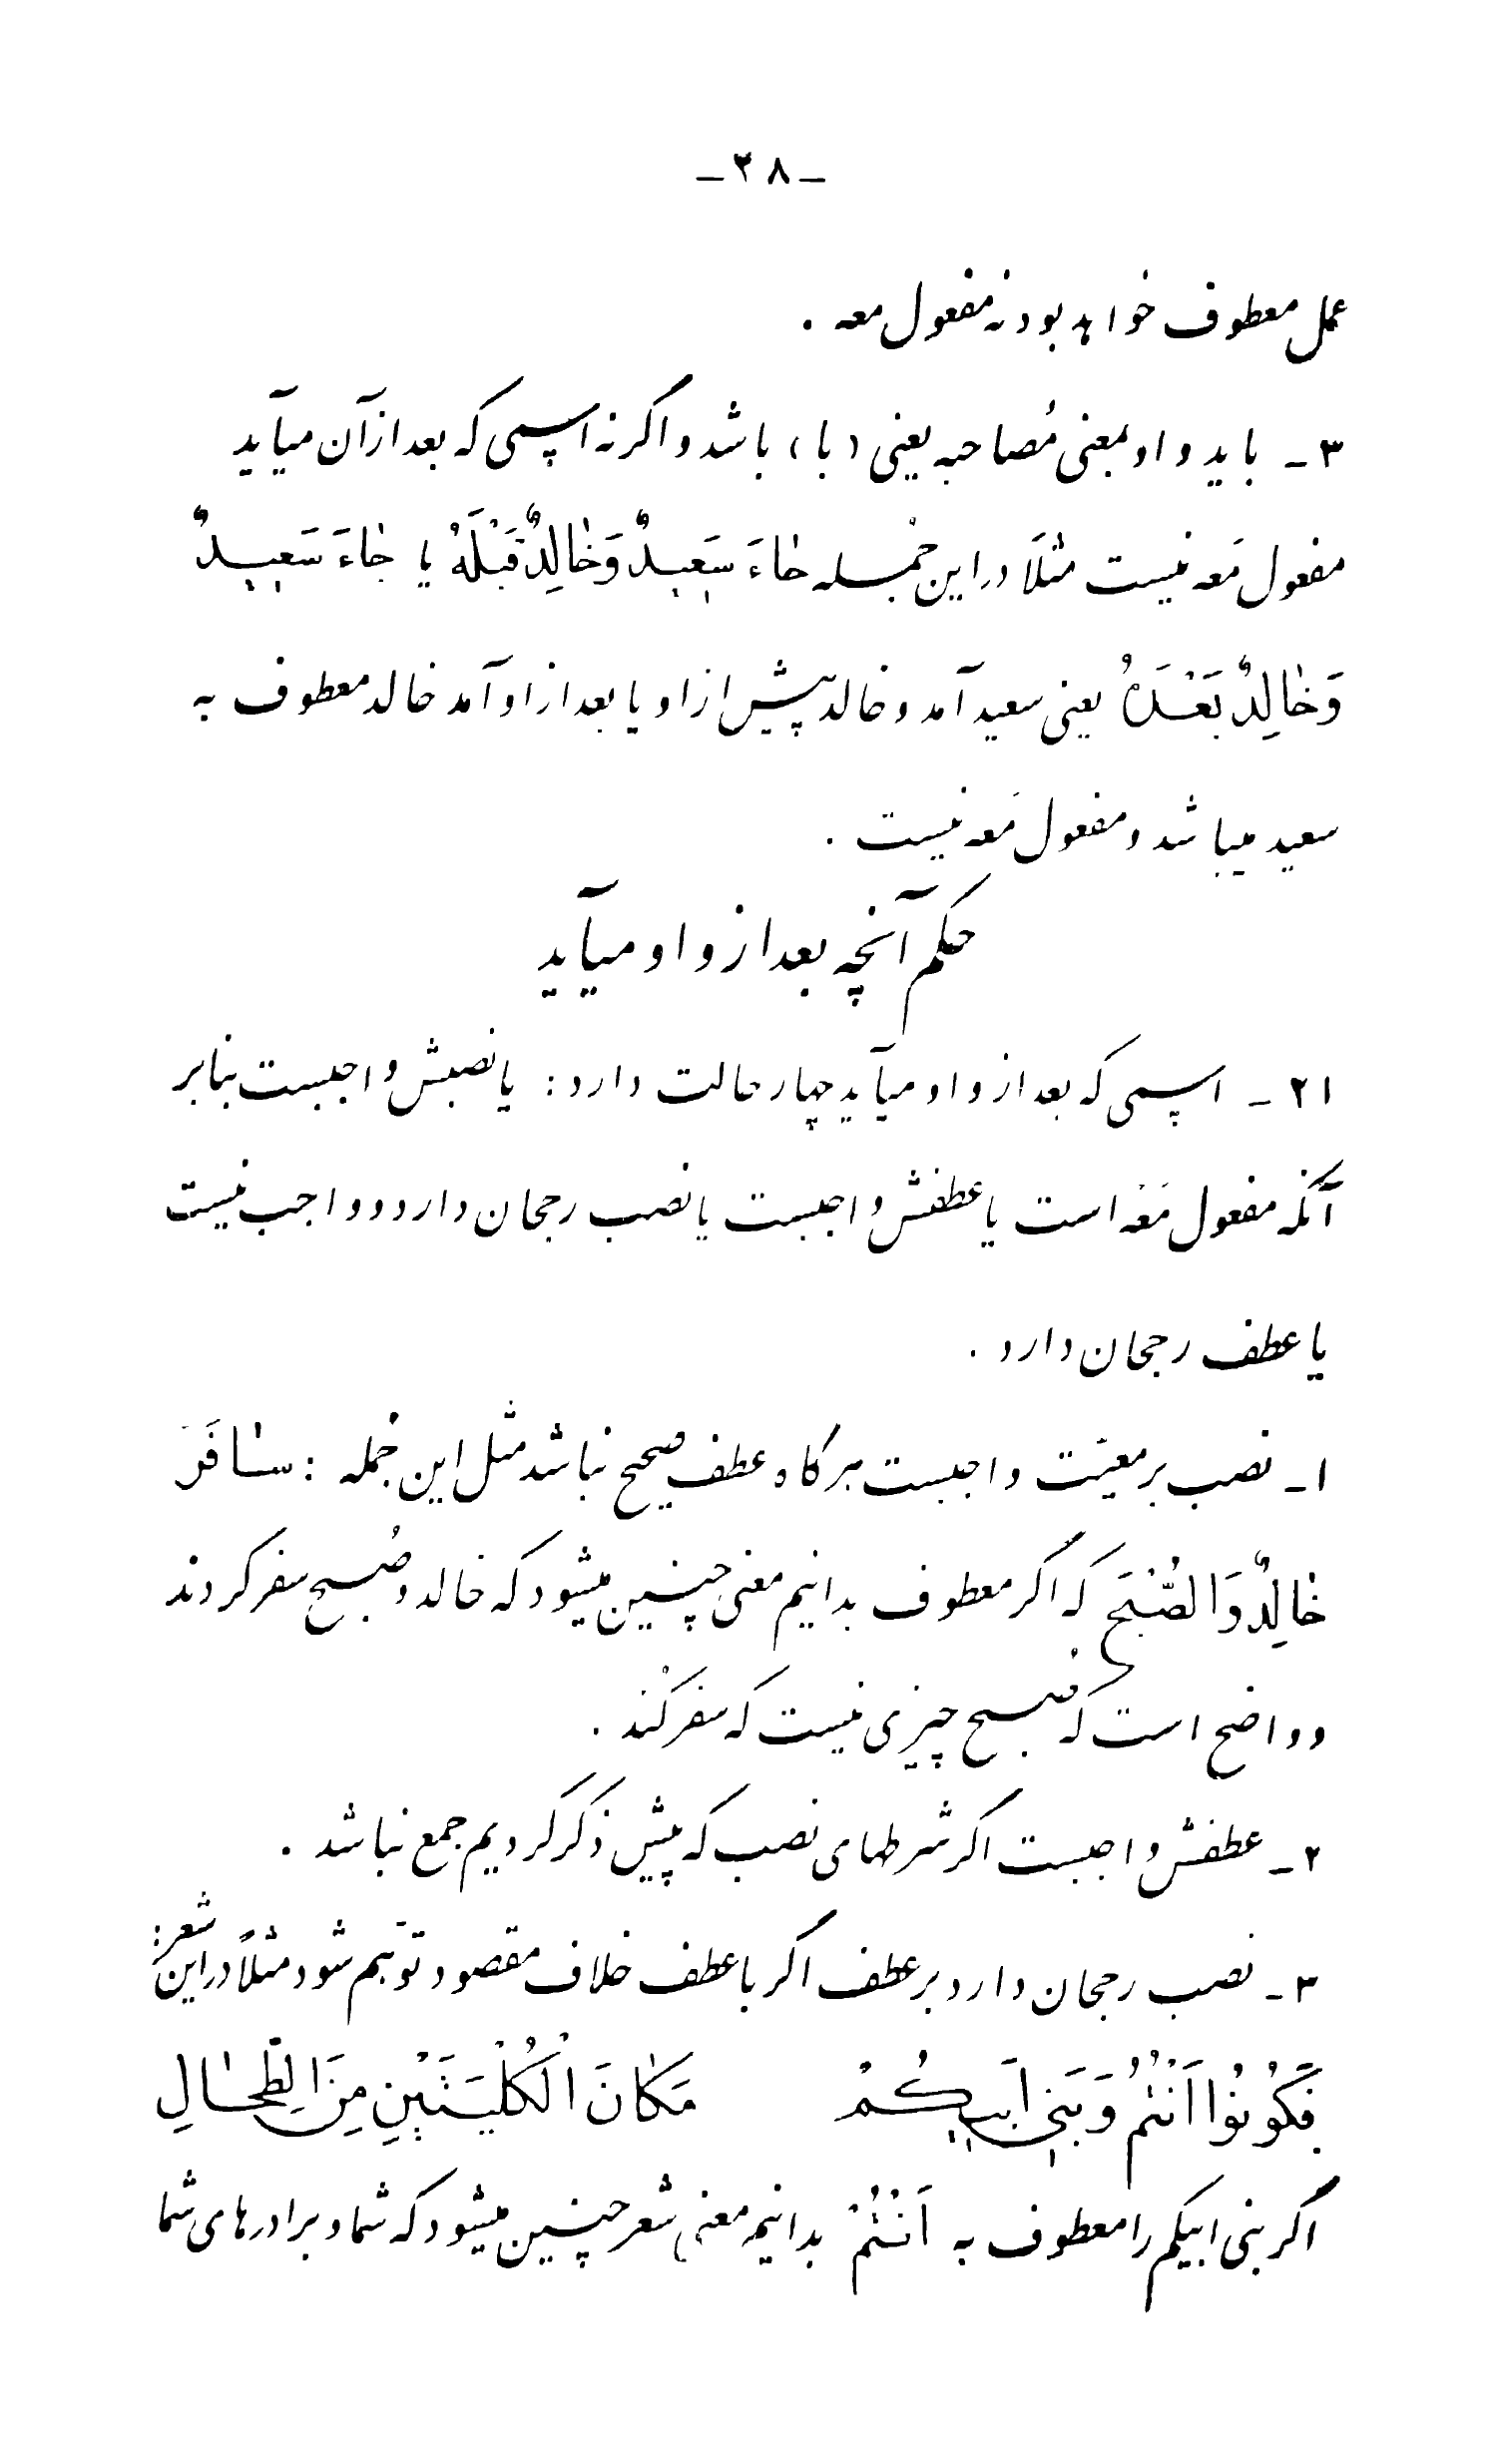 ـ ۳۸ ـ
عمل معطوف خواهد بود نه مفعول معه .
۳ ـ باید واو بمعنی مُصاحبه یعنی (با) باشد و اگر نه اسمی که بعد از آن میآید
مفعول مَعه نیست مثلاً در این جُمله جٰاءَ سَعیدٌ وَخٰالِدٌ قَبْلَهُ یا جٰاءَ سَعیدٌ
وَخٰالِدٌ بَعْدَهُ یعنی سعید آمد و خالد پیش از او یا بعد از او آمد خالد معطوف به
سعید میباشد و مفعول مَعه نیست .
حکم آنچه بعد از واو میآید
۲۱ ـ اسمی که بعد از واو میآید چهار حالت دارد : یا نصبش واجبست بنابر
آنکه مفعول مَعَه است یا عطفش واجبست یا نصب رجحان دارد و واجب نیست
یا عطف رجحان دارد .
۱ ـ نصب بر معیّت واجبست هرگاه عطف صحیح نباشد مثل این جُمله : سٰافَرَ
خٰالِدٌ وَالصُّبْحَ که اگر معطوف بدانیم معنی چنین میشود که خالد و صُبح سفر کردند
و واضح است که صُبح چیزی نیست که سفر کُند .
۲ ـ عطفش واجبست اگر شرطهای نصب که پیش ذکر کردیم جمع نباشد .
۳ ـ نصب رجحان دارد بر عطف اگر با عطف خلاف مقصود توّهم شود مثلاً در این شعر :
فَکُونُوا اَنْتُمْ وَبَنی اَبیکُمْ مَکٰانَ الْکُلْیَتَیْنِ مِنَ الطِّحٰالِ
اگر بنی ابیکم را معطوف به اَنْتُمْ بدانیم معنی شعر چنین میشود که شما و برادرهای شما